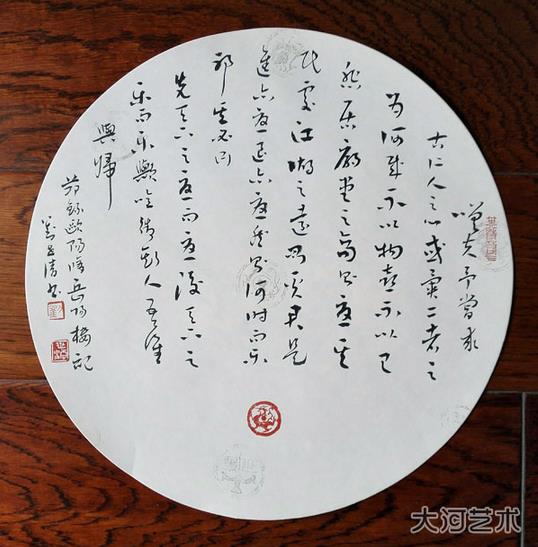 嗟夫予嘗求
古仁人之心或異二者之
为何哉不以物喜不以己
悲居廟堂之高則憂其
民處江湖之遠則君是
進亦憂退亦憂然則何時而樂
耶其必曰
先天下之憂而憂後天下之
樂而樂歟噫微斯人吾誰
與歸
節錄歐陽修岳陽樓記
清书
大河艺术